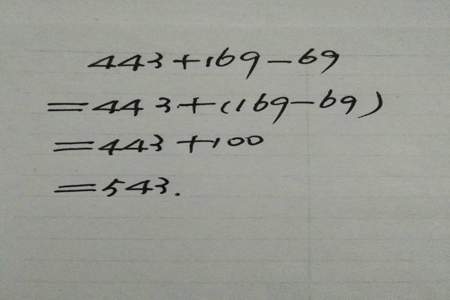 443+169-69
=443+(169-69)
=443+100
=543.